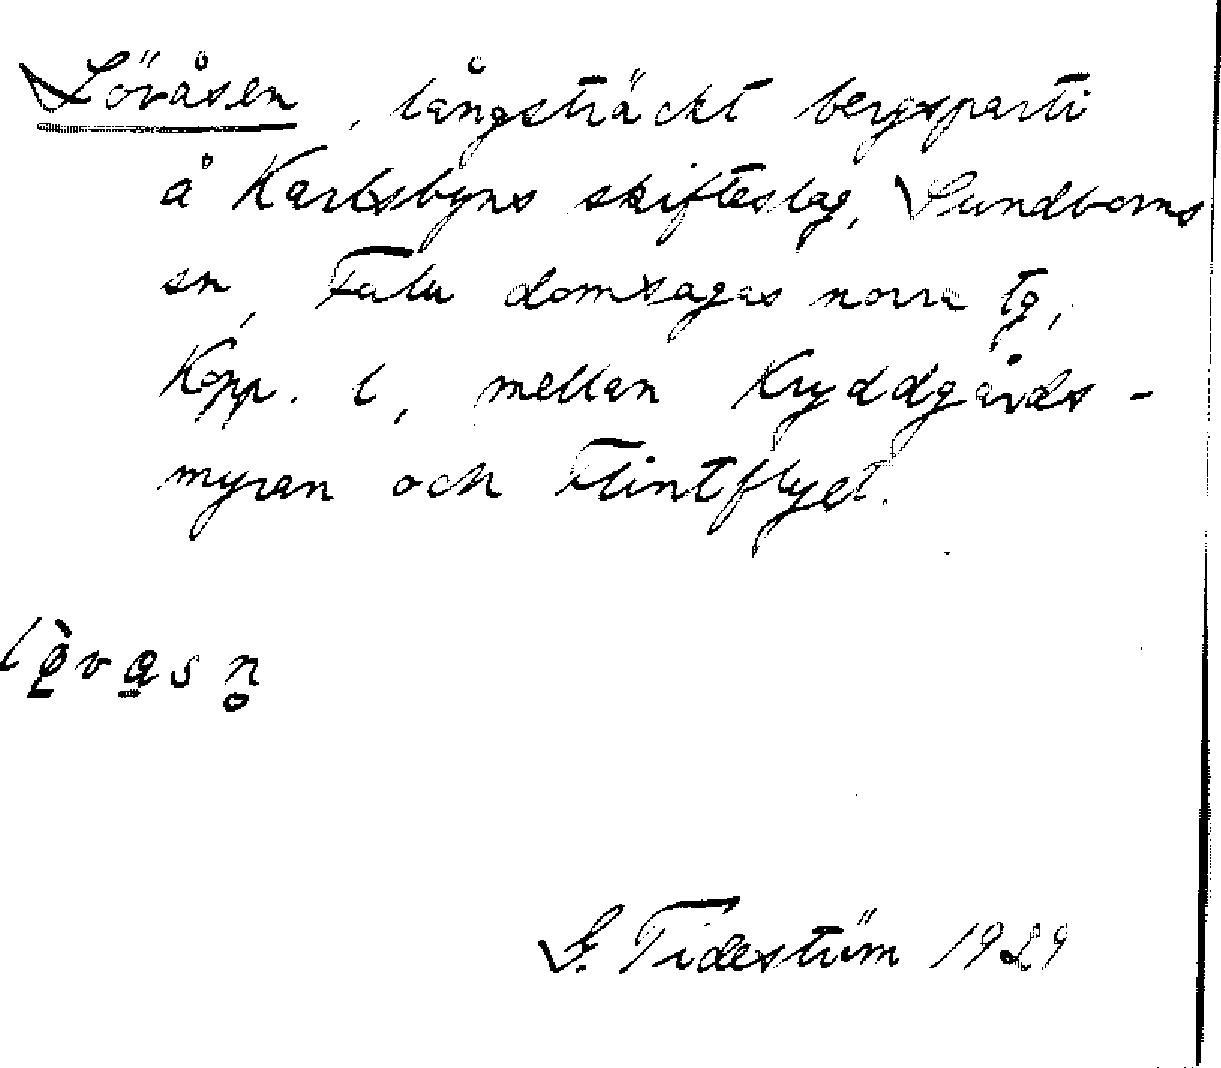 Lövåsen, långsträckt bergsparti
å Karlsbyns skifteslag, Sundborns
sn, Falu domsagas norra tg,
Kopp. l, mellan Kryddgårds-
myran och Flintflyet.
G. Tideström 1929